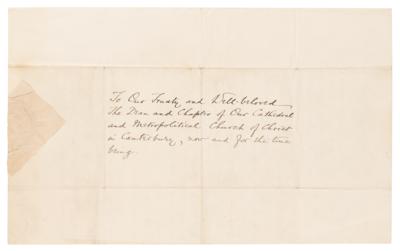 To Our Trusty and Well-beloved
The Dean and Chapter of Our Cathedral
and Metropolitical Church of Christ
in Canterbury, now and for the time
being.